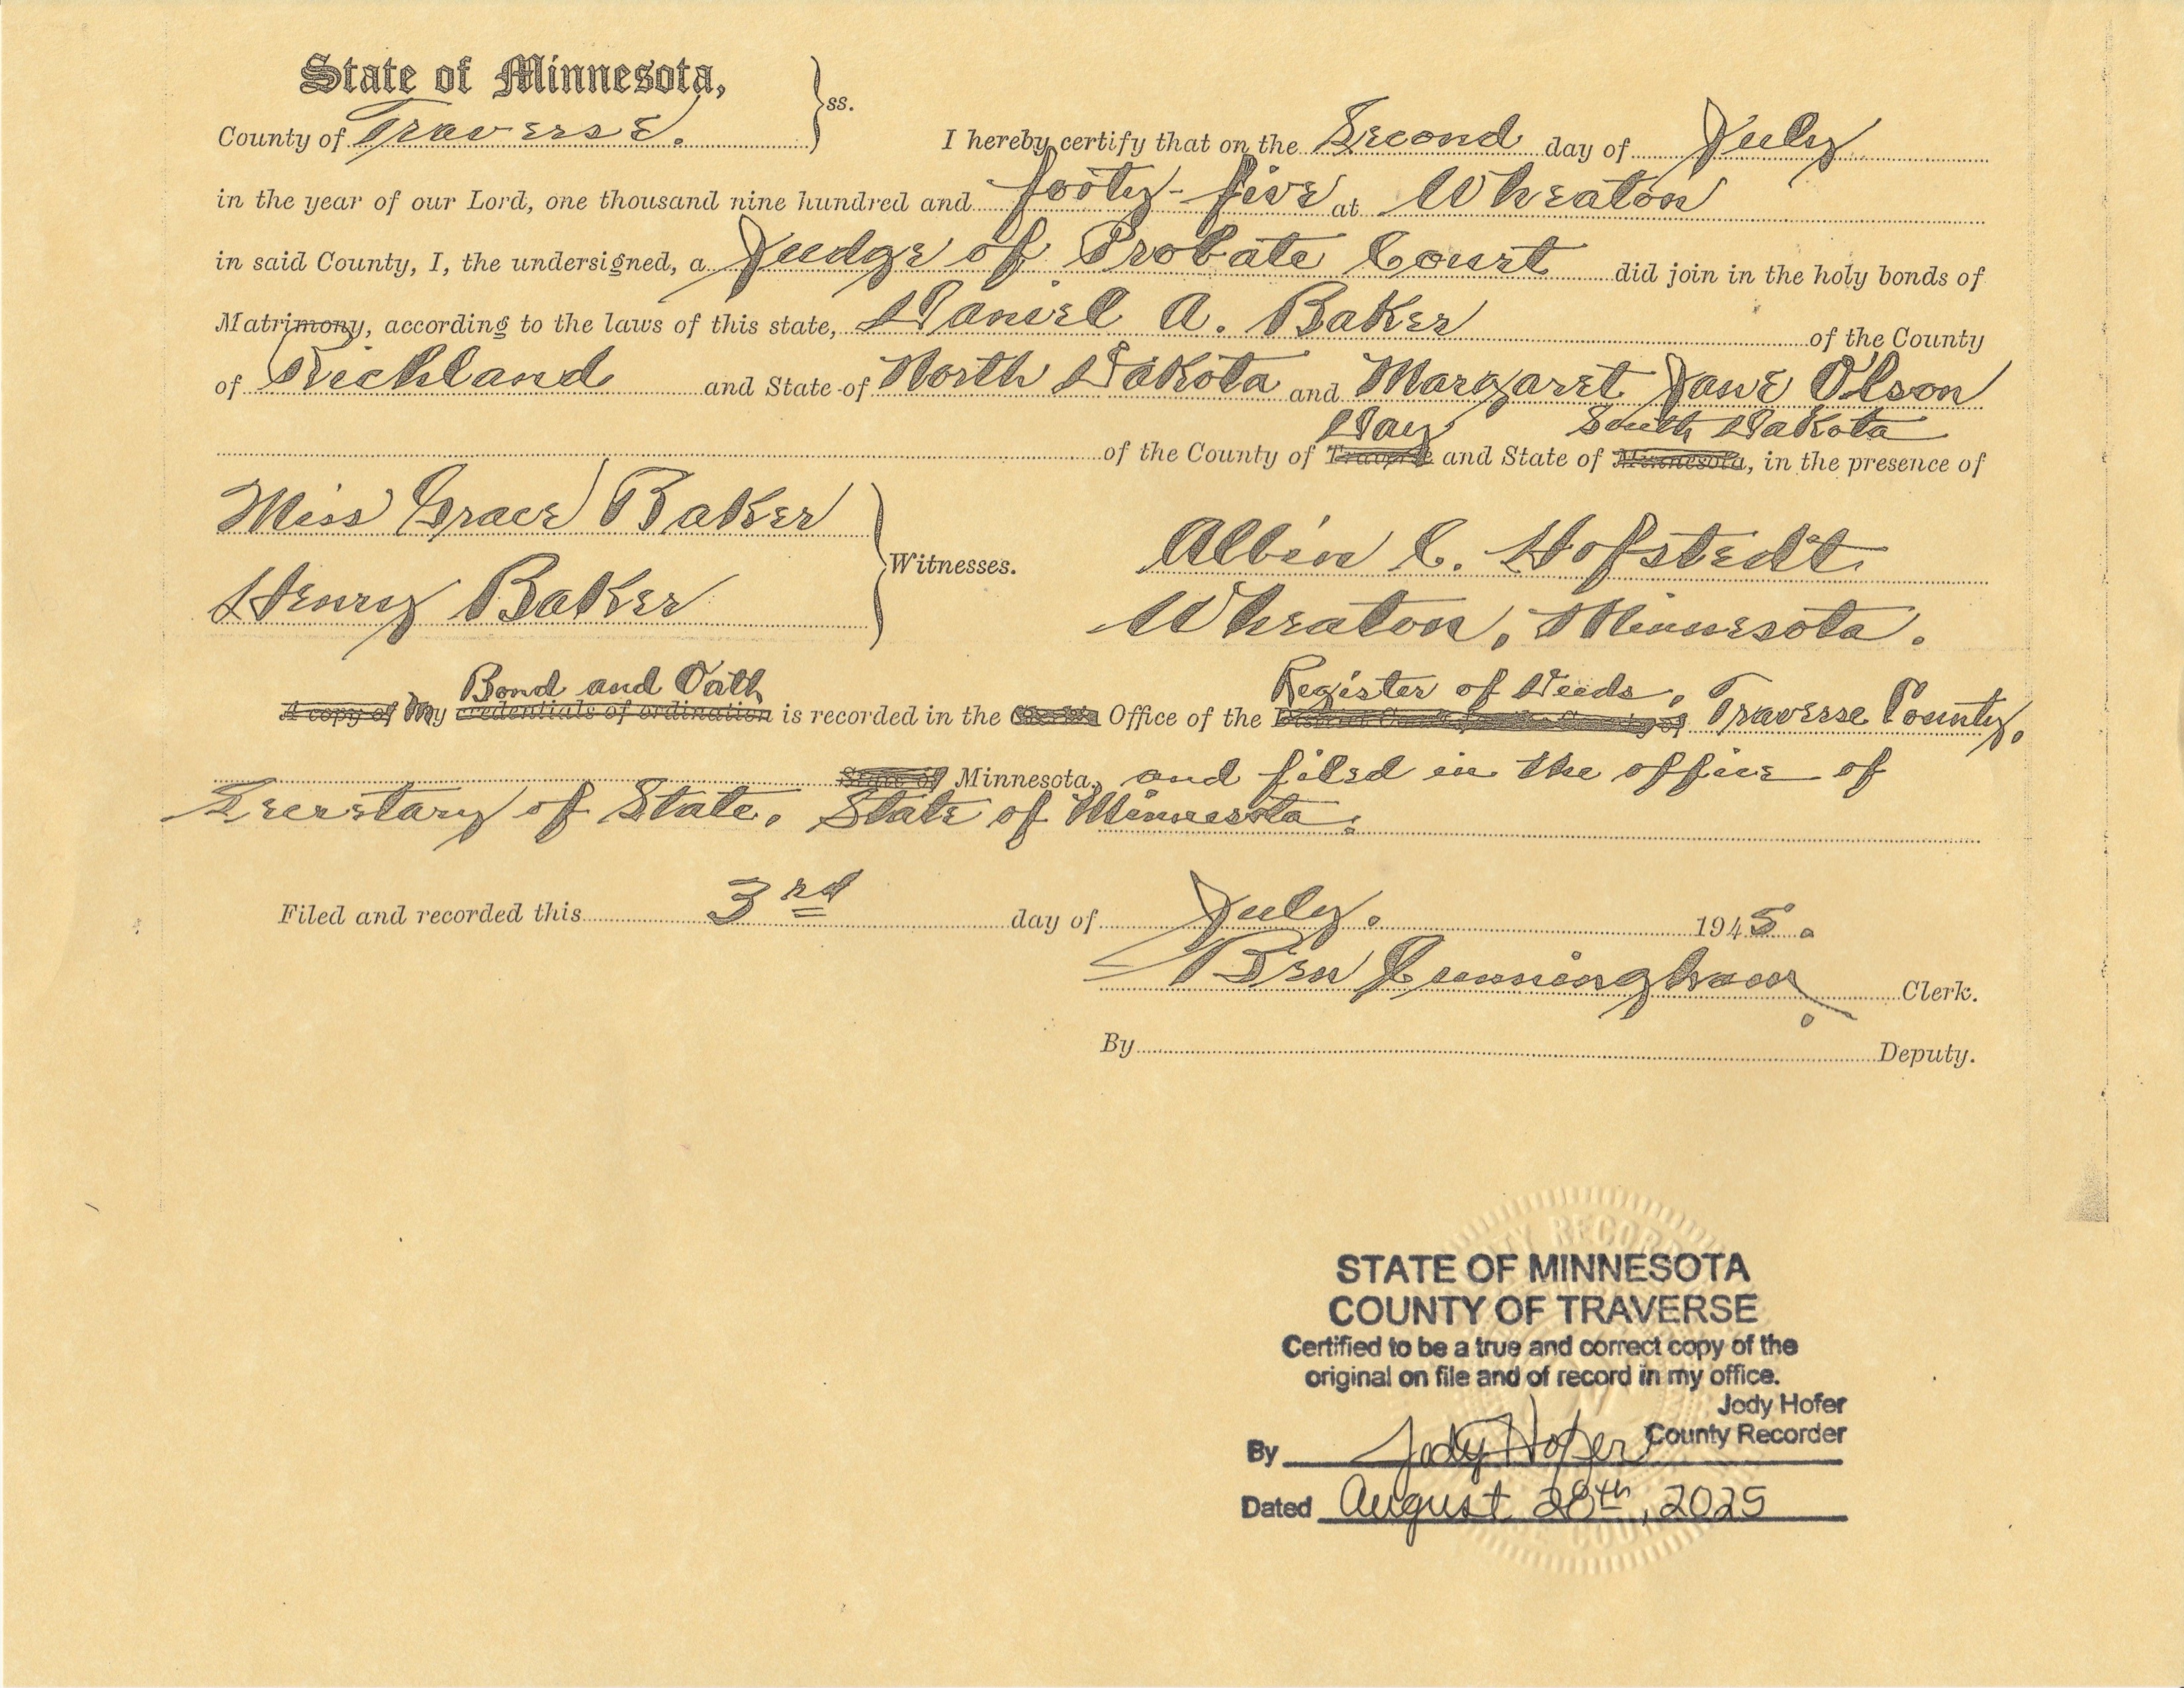 State of Minnesota, ss.
County of Traverse. I hereby certify that on the Second day of July
in the year of our Lord, one thousand nine hundred and forty-five at Wheaton
in said County, I, the undersigned, a Judge of Probate Court did join in the holy bonds of
Matrimony, according to the laws of this state, Daniel A. Baker of the County
of Richland and State of North Dakota and Margaret Jane Olson
Day South Dakota
of the County of Traverse and State of Minnesota, in the presence of
Miss Grace Baker
Henry Baker
Witnesses.
Albin C. Hofstedt
Wheaton, Minnesota.
Bond and Oath Register of Deeds, Traverse County.
A copy of My credentials of ordination is recorded in the Office of the
State of Minnesota, and filed in the office of
Secretary of State, State of Minnesota.
Filed and recorded this 3rd day of July. 1945.
Ben Cunningham Clerk.
By Deputy.
COUNTY RECOR
STATE OF MINNESOTA
COUNTY OF TRAVERSE
Certified to be a true and correct copy of the
original on file and of record in my office.
Jody Hofer
County Recorder
By Jody Hofer
Dated August 28th, 2025